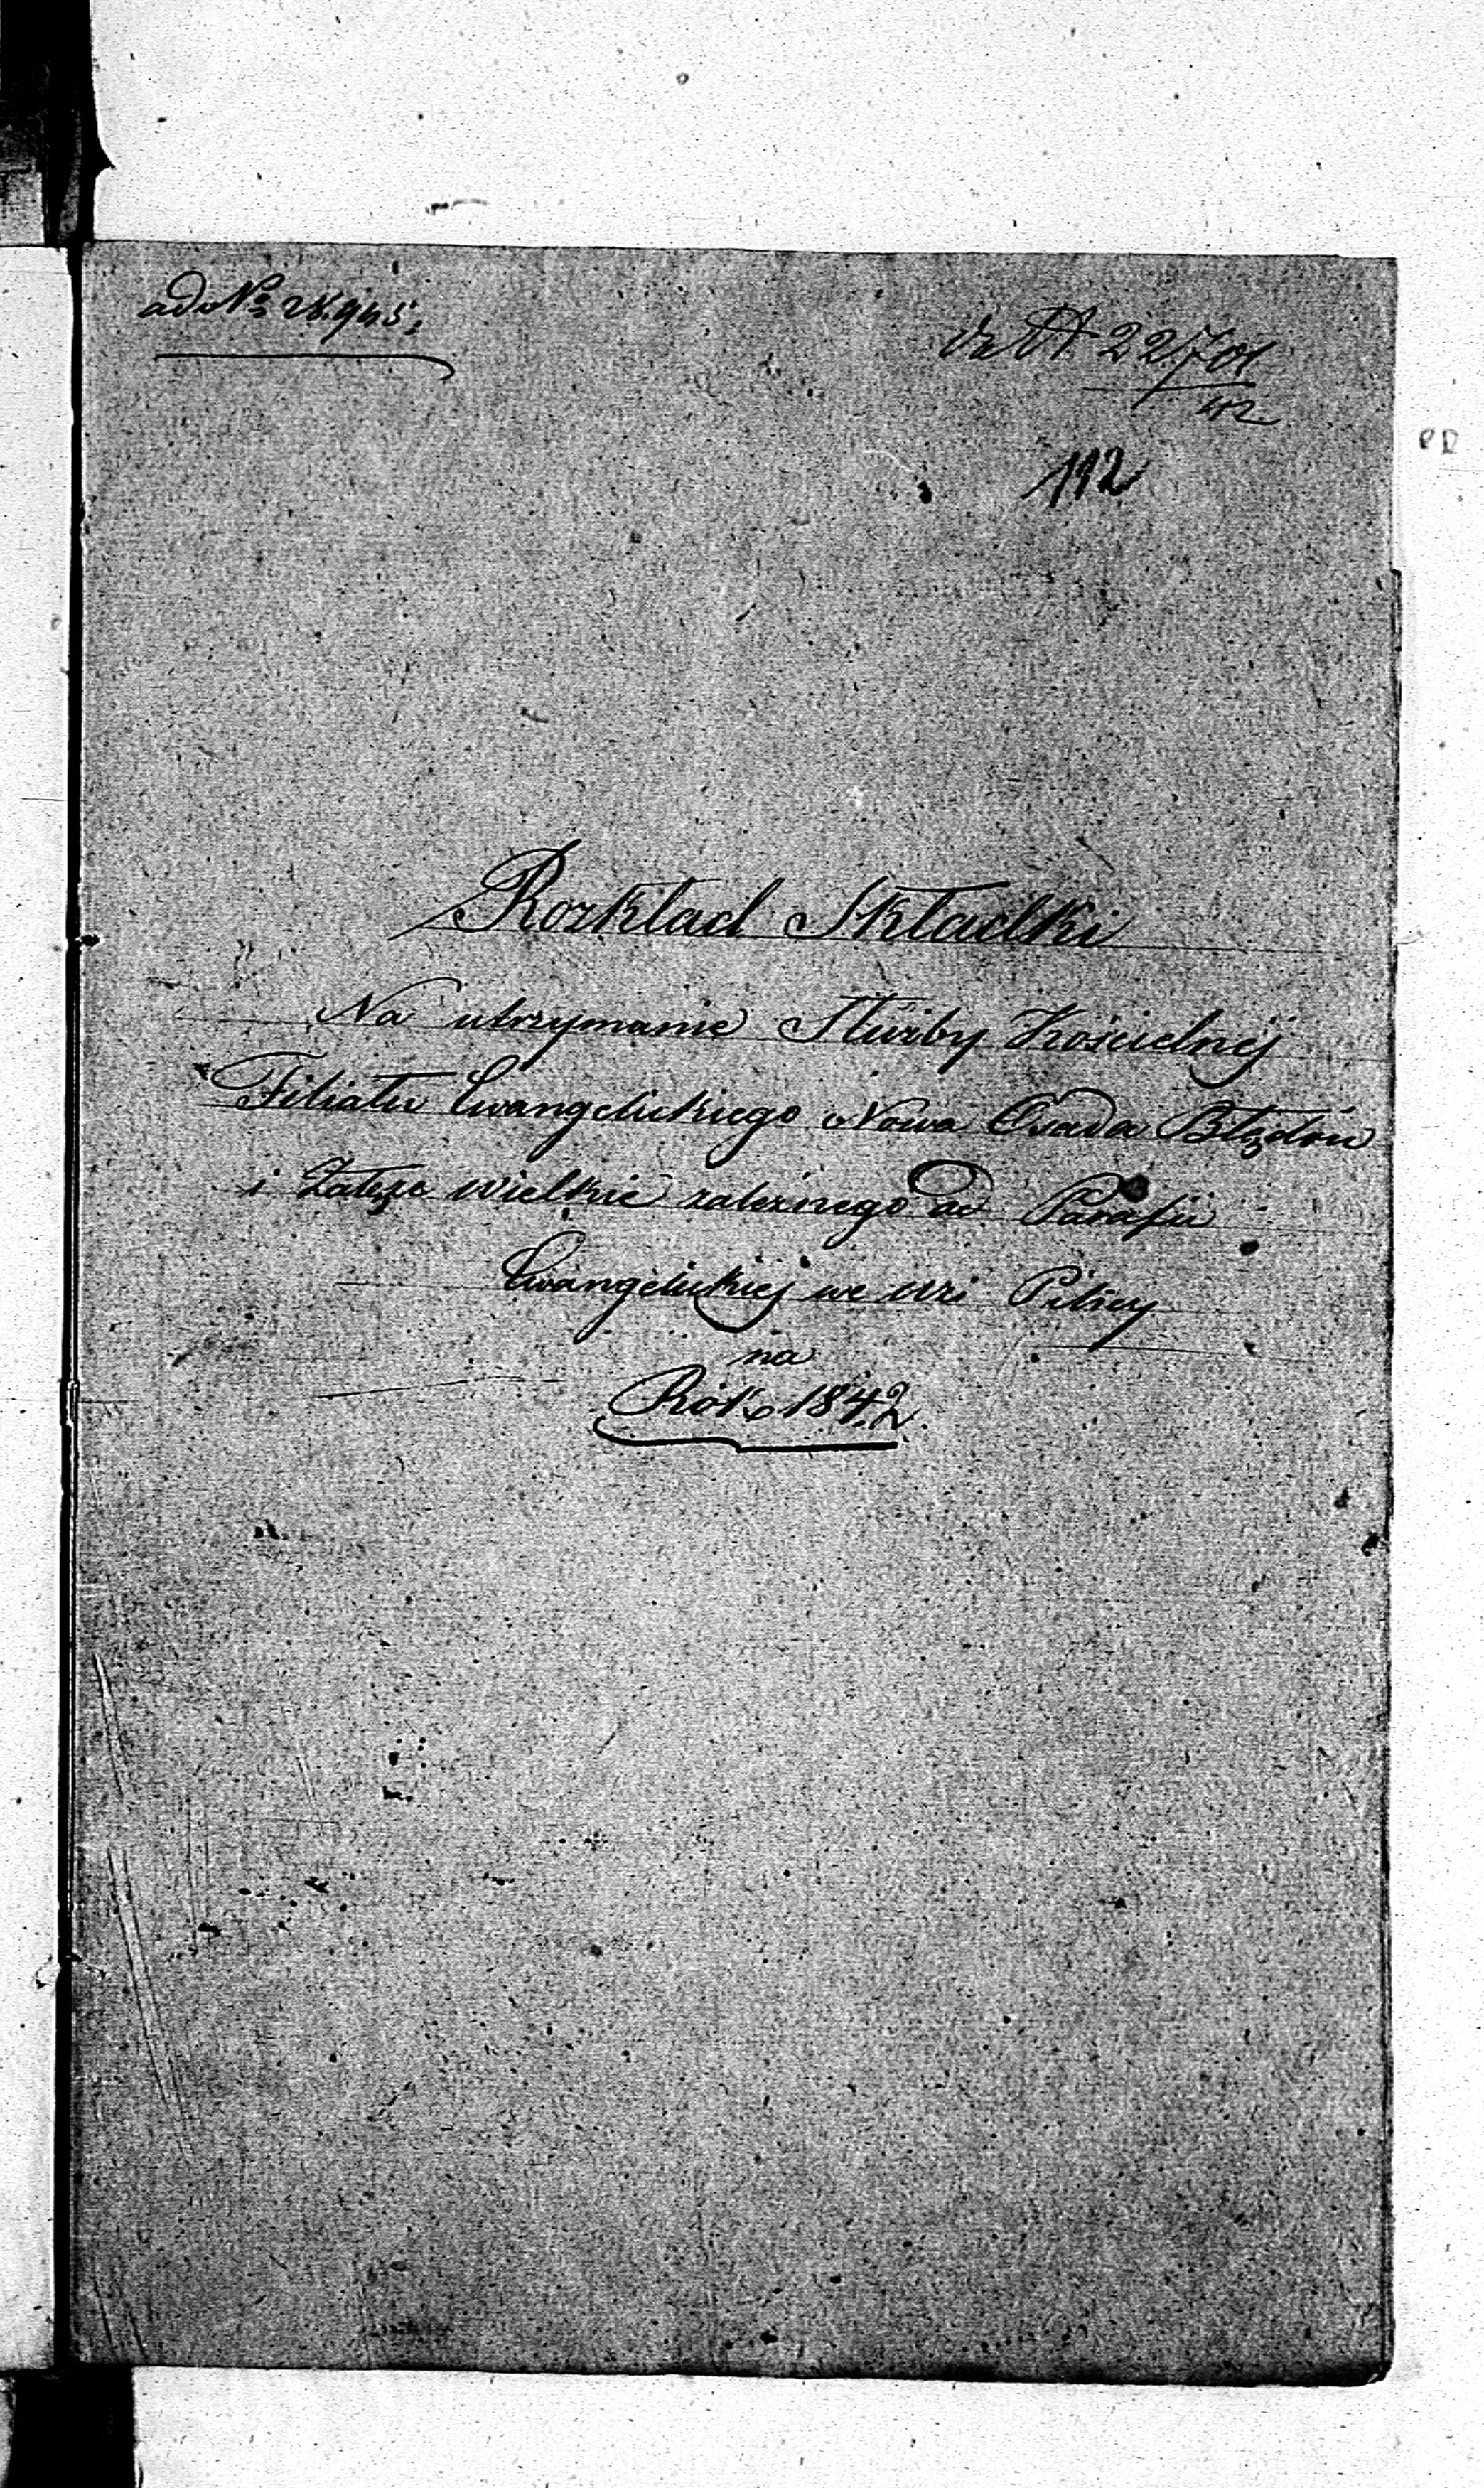 ad No 28.945.
22701
42
112
Rozkład Składki
Na utrzymanie Służby Kościelnéj
Filiału Ewangelickiego Nowa Osada Błędów
i Załęże wielkie zależnego od Parafii
Ewangelickiej we wsi Pilicy
na
Rok 1842